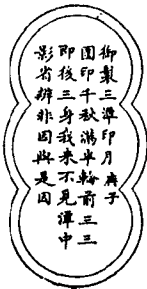 御製三潭印月 庚子
圓印千秋滿半輪前三三
即後三身我來不見潭中
影省辨非因與是因